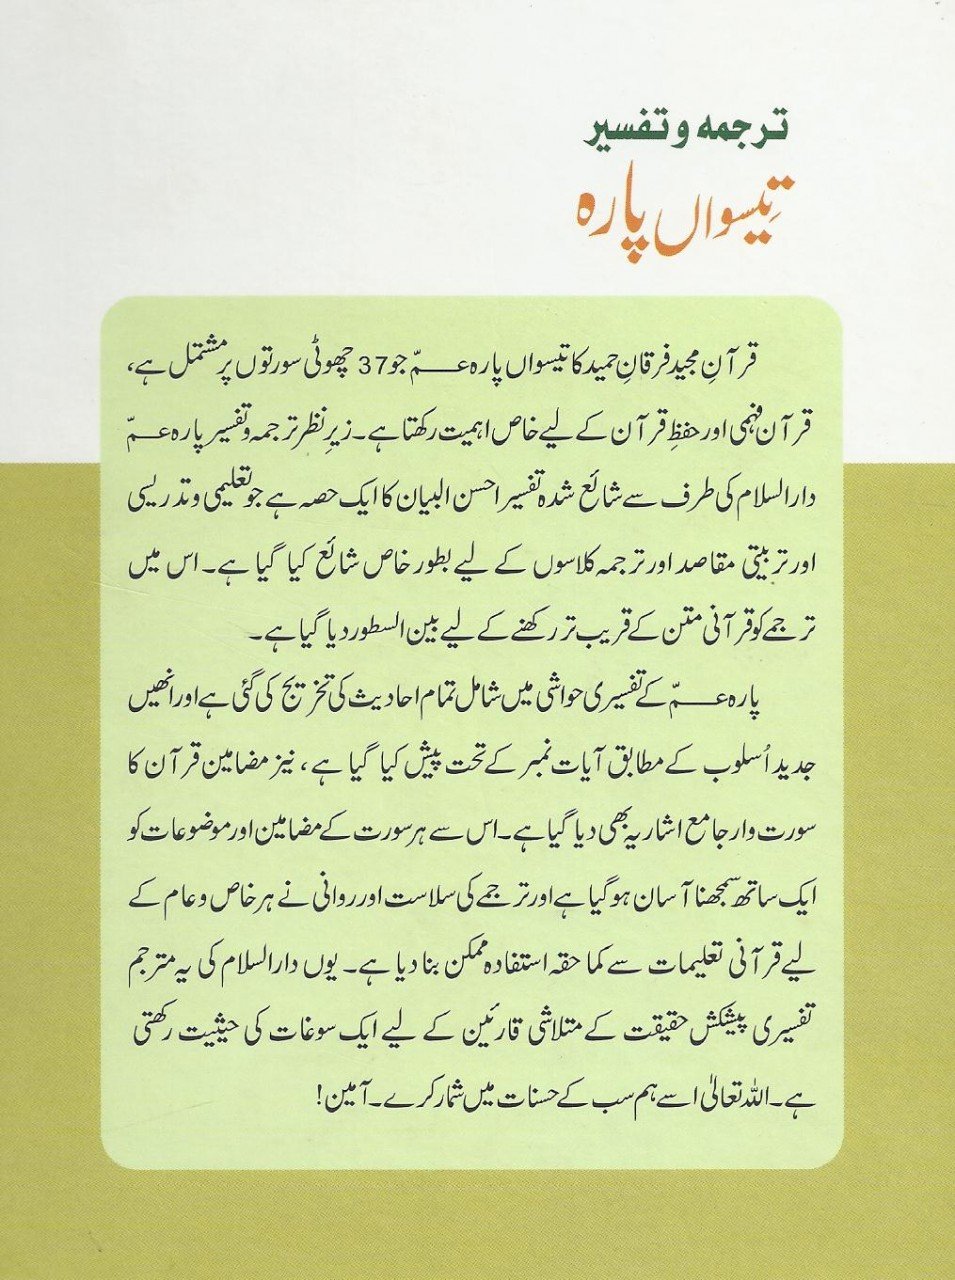 ترجمہ و تفسیر
تیسواں پارہ
قرآنِ مجید فرقانِ حمید کا تیسواں پارہ عمّ جو 37 چھوٹی سورتوں پر مشتمل ہے،
قرآن فہمی اور حفظِ قرآن کے لیے خاص اہمیت رکھتا ہے۔ زیرِ نظر ترجمہ و تفسیر پارہ عمّ
دارالسلام کی طرف سے شائع شدہ تفسیر احسن البیان کا ایک حصہ ہے جو تعلیمی و تدریسی
اور تربیتی مقاصد اور ترجمہ کلاسوں کے لیے بطور خاص شائع کیا گیا ہے۔ اس میں
ترجمے کو قرآنی متن کے قریب تر رکھنے کے لیے بین السطور دیا گیا ہے۔
پارہ عمّ کے تفسیری حواشی میں شامل تمام احادیث کی تخریج کی گئی ہے اور انھیں
جدید اُسلوب کے مطابق آیات نمبر کے تحت پیش کیا گیا ہے، نیز مضامین قرآن کا
سورت وار جامع اشاریہ بھی دیا گیا ہے۔ اس سے ہر سورت کے مضامین اور موضوعات کو
ایک ساتھ سمجھنا آسان ہو گیا ہے اور ترجمے کی سلاست اور روانی نے ہر خاص و عام کے
لیے قرآنی تعلیمات سے کما حقہ استفادہ ممکن بنا دیا ہے۔ یوں دارالسلام کی یہ مترجم
تفسیری پیشکش حقیقت کے متلاشی قارئین کے لیے ایک سوغات کی حیثیت رکھتی
ہے۔ اللہ تعالیٰ اسے ہم سب کے حسنات میں شمار کرے۔ آمین!